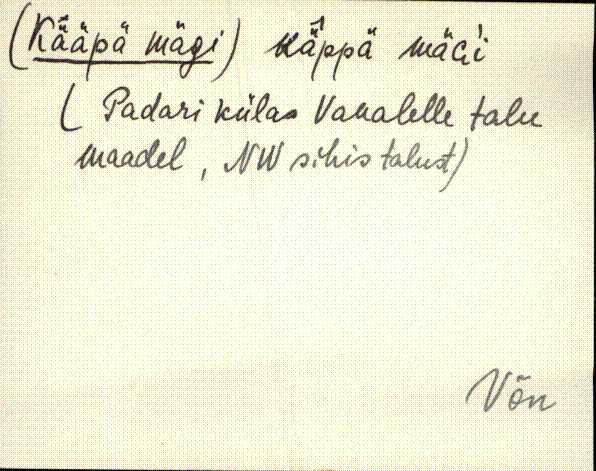 (Kääpä mägi) käppä mäGi
( Padari külas Vanalelle talu
maadel, NW sihis talust)
Võn